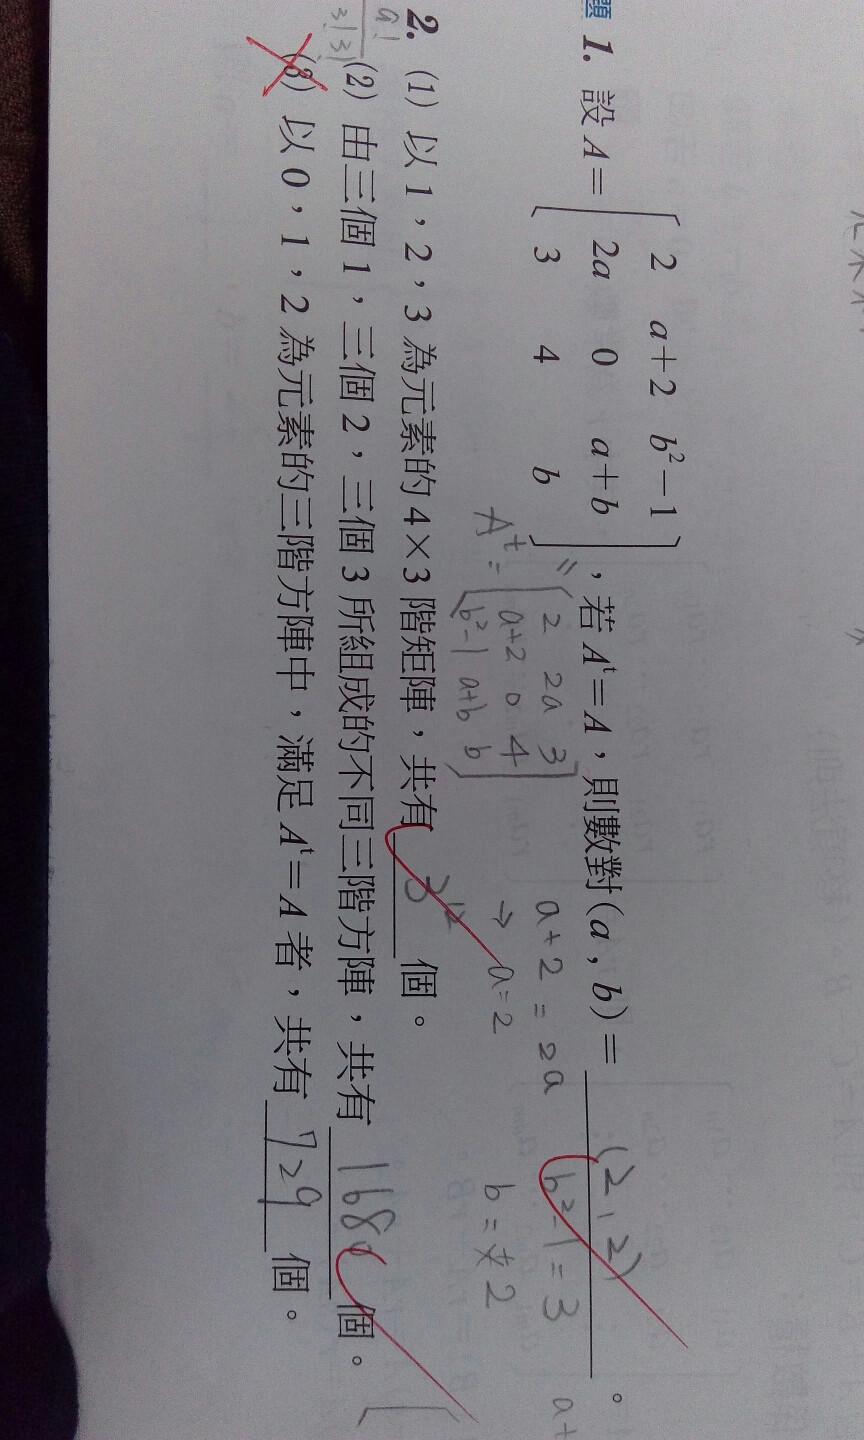 題 1. 設 A = [ 2 a+2 b²−1
2a 0 a+b
3 4 b ] , 若 Aᵗ=A , 則數對(a , b)= (2,2) 。
Aᵗ = [ 2 2a 3
a+2 0 4
b²-1 a+b b ]
a+2 = 2a
→ a=2
b²-1 = 3
a+
2. (1) 以 1 , 2 , 3 為元素的 4×3 階矩陣 , 共有 3¹² 個。
(2) 由三個 1 , 三個 2 , 三個 3 所組成的不同三階方陣 , 共有 1680 個。
(3) 以 0 , 1 , 2 為元素的三階方陣中 , 滿足 Aᵗ=A 者 , 共有 729 個。